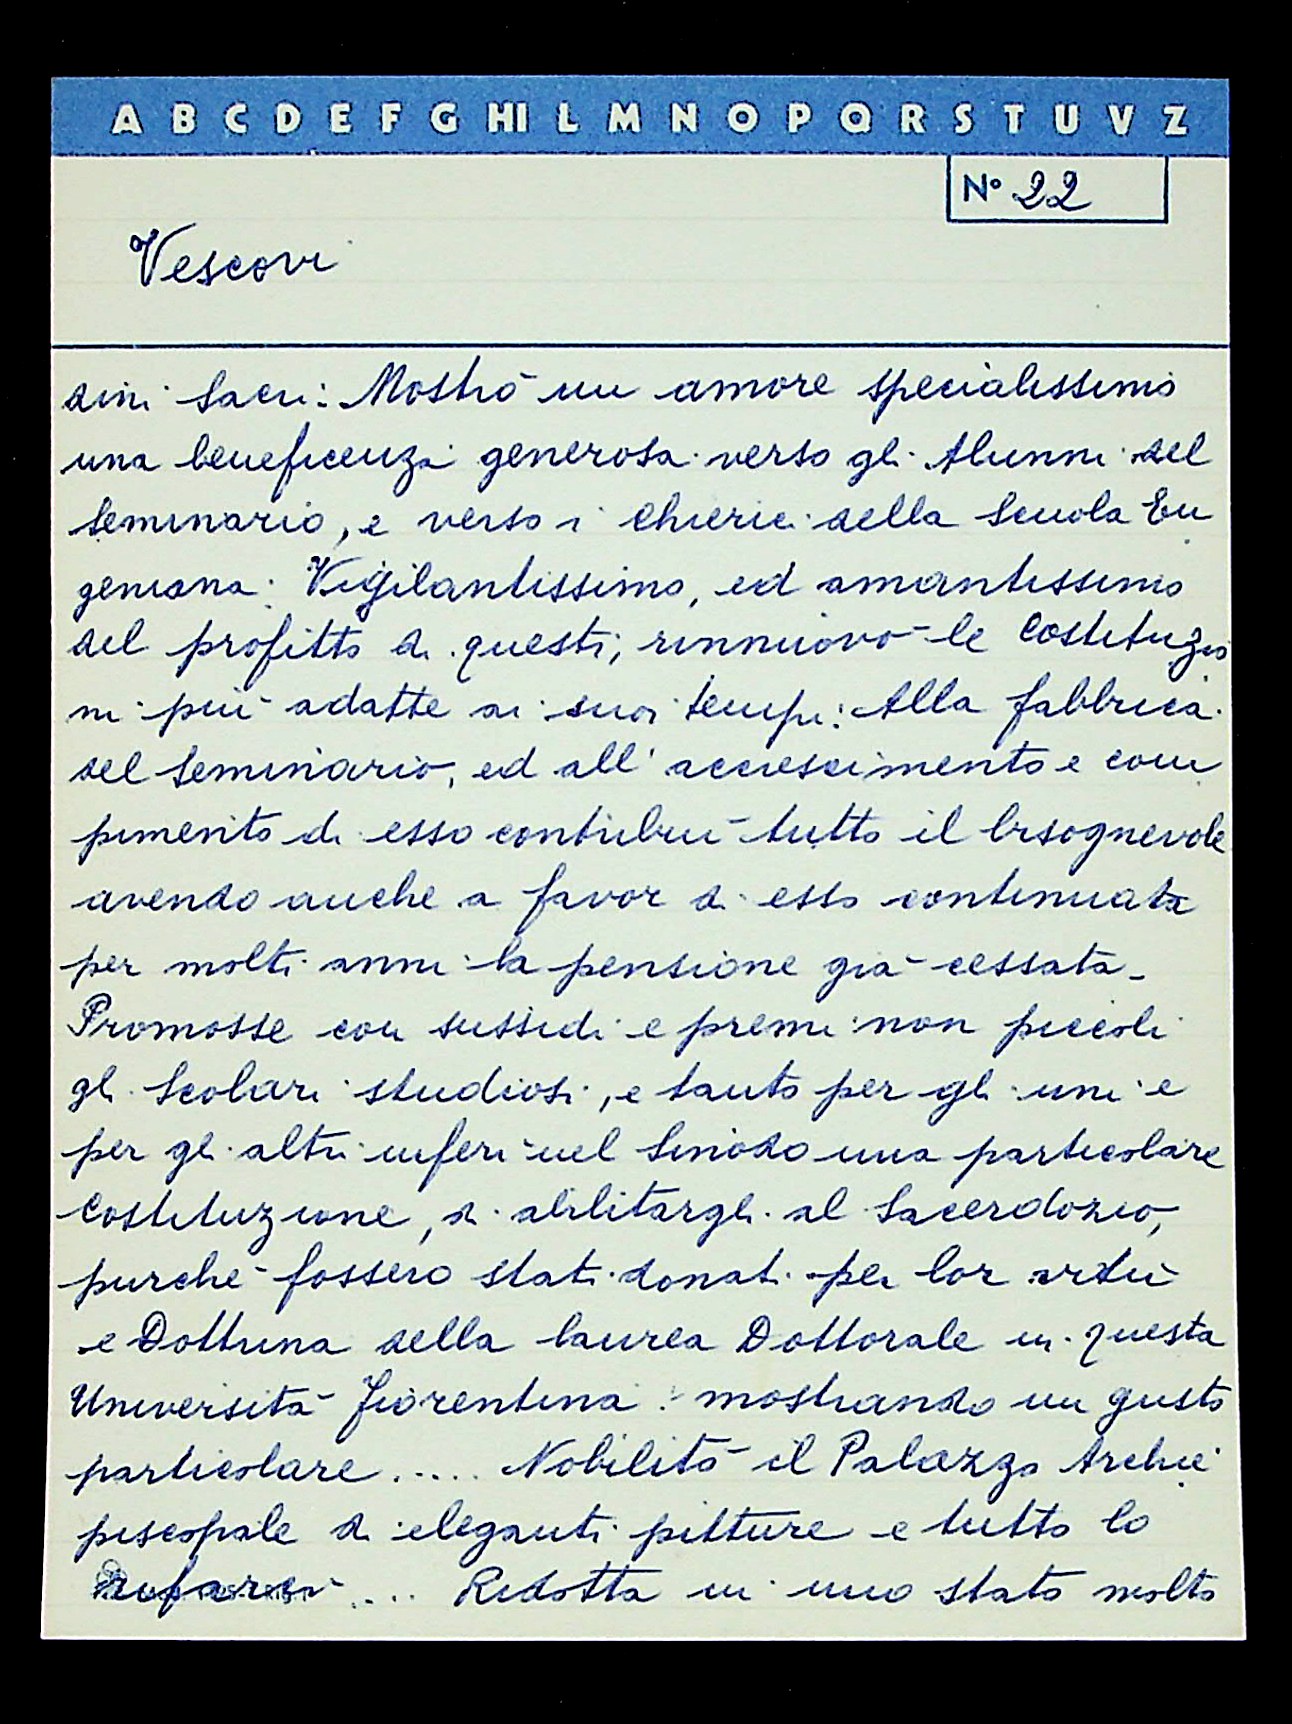 A B C D E F G H I L M N O P Q R S T U V Z
N° 22
Vescovi
dini Sacri: Mostrò un amore specialissimo
una beneficenza generosa verso gli Alunni del
Seminario, e verso i Chierici della Scuola Eu
geniana: Vigilantissimo, ed amantissimo
del profitto di questi, rinnuovò le Costituzio
ni più adatte ai suoi tempi: Alla fabbrica
del Seminario, ed all'accrescimento e com
pimento di esso contribuì tutto il bisognevole
avendo anche a favor di esso continuata
per molti anni la pensione già cessata.
Promosse con sussidi e premi non piccoli
gli Scolari studiosi, e tanto per gli uni e
per gli altri inferì nel Sinodo una particolare
Costituzione, di abilitargli al Sacerdozio,
purchè fossero stati donati per lor virtù
e Dottrina della laurea Dottorale in questa
Università Fiorentina: mostrando un gusto
particolare ..... Nobilitò il Palazzo Archie
piscopale di eleganti pitture e tutto lo
.... Ridotta in uno stato molto